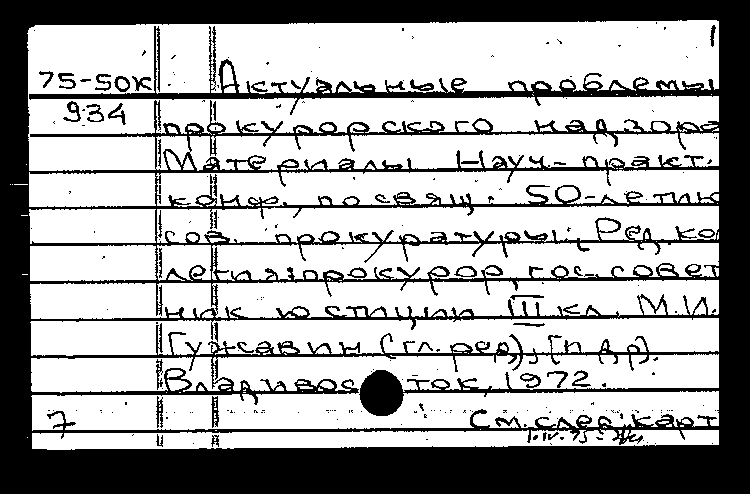 1
75-50к Актуальные проблемы
934 прокурорского надзора
Материалы Науч.-практ.
конф., посвящ. 50-летию
сов. прокуратуры. [Ред. кол
легия: прокурор, гос. совет
ник юстиции III кл. М.И.
Гужавин (гл. ред), [и др].
Владивосток, 1972.
7 См. след. карт